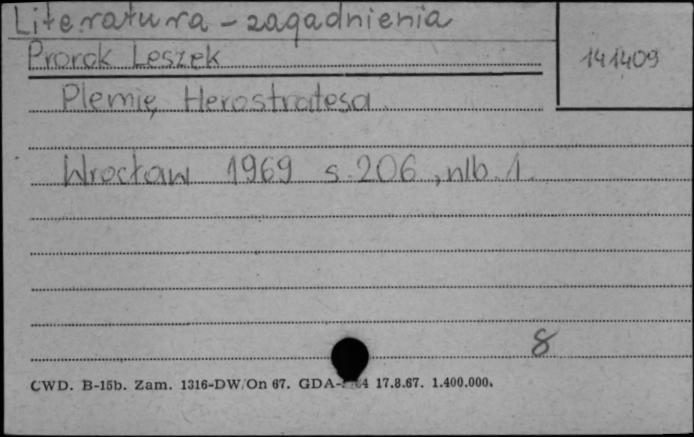 Literatura - zagadnienia
Prorok Leszek
141409
Plemię Herostratesa.
Wrocław 1969 s. 206, nlb. 1.
8
CWD. B-15b. Zam. 1316-DW/On 67. 17.8.67. 1.400.000.